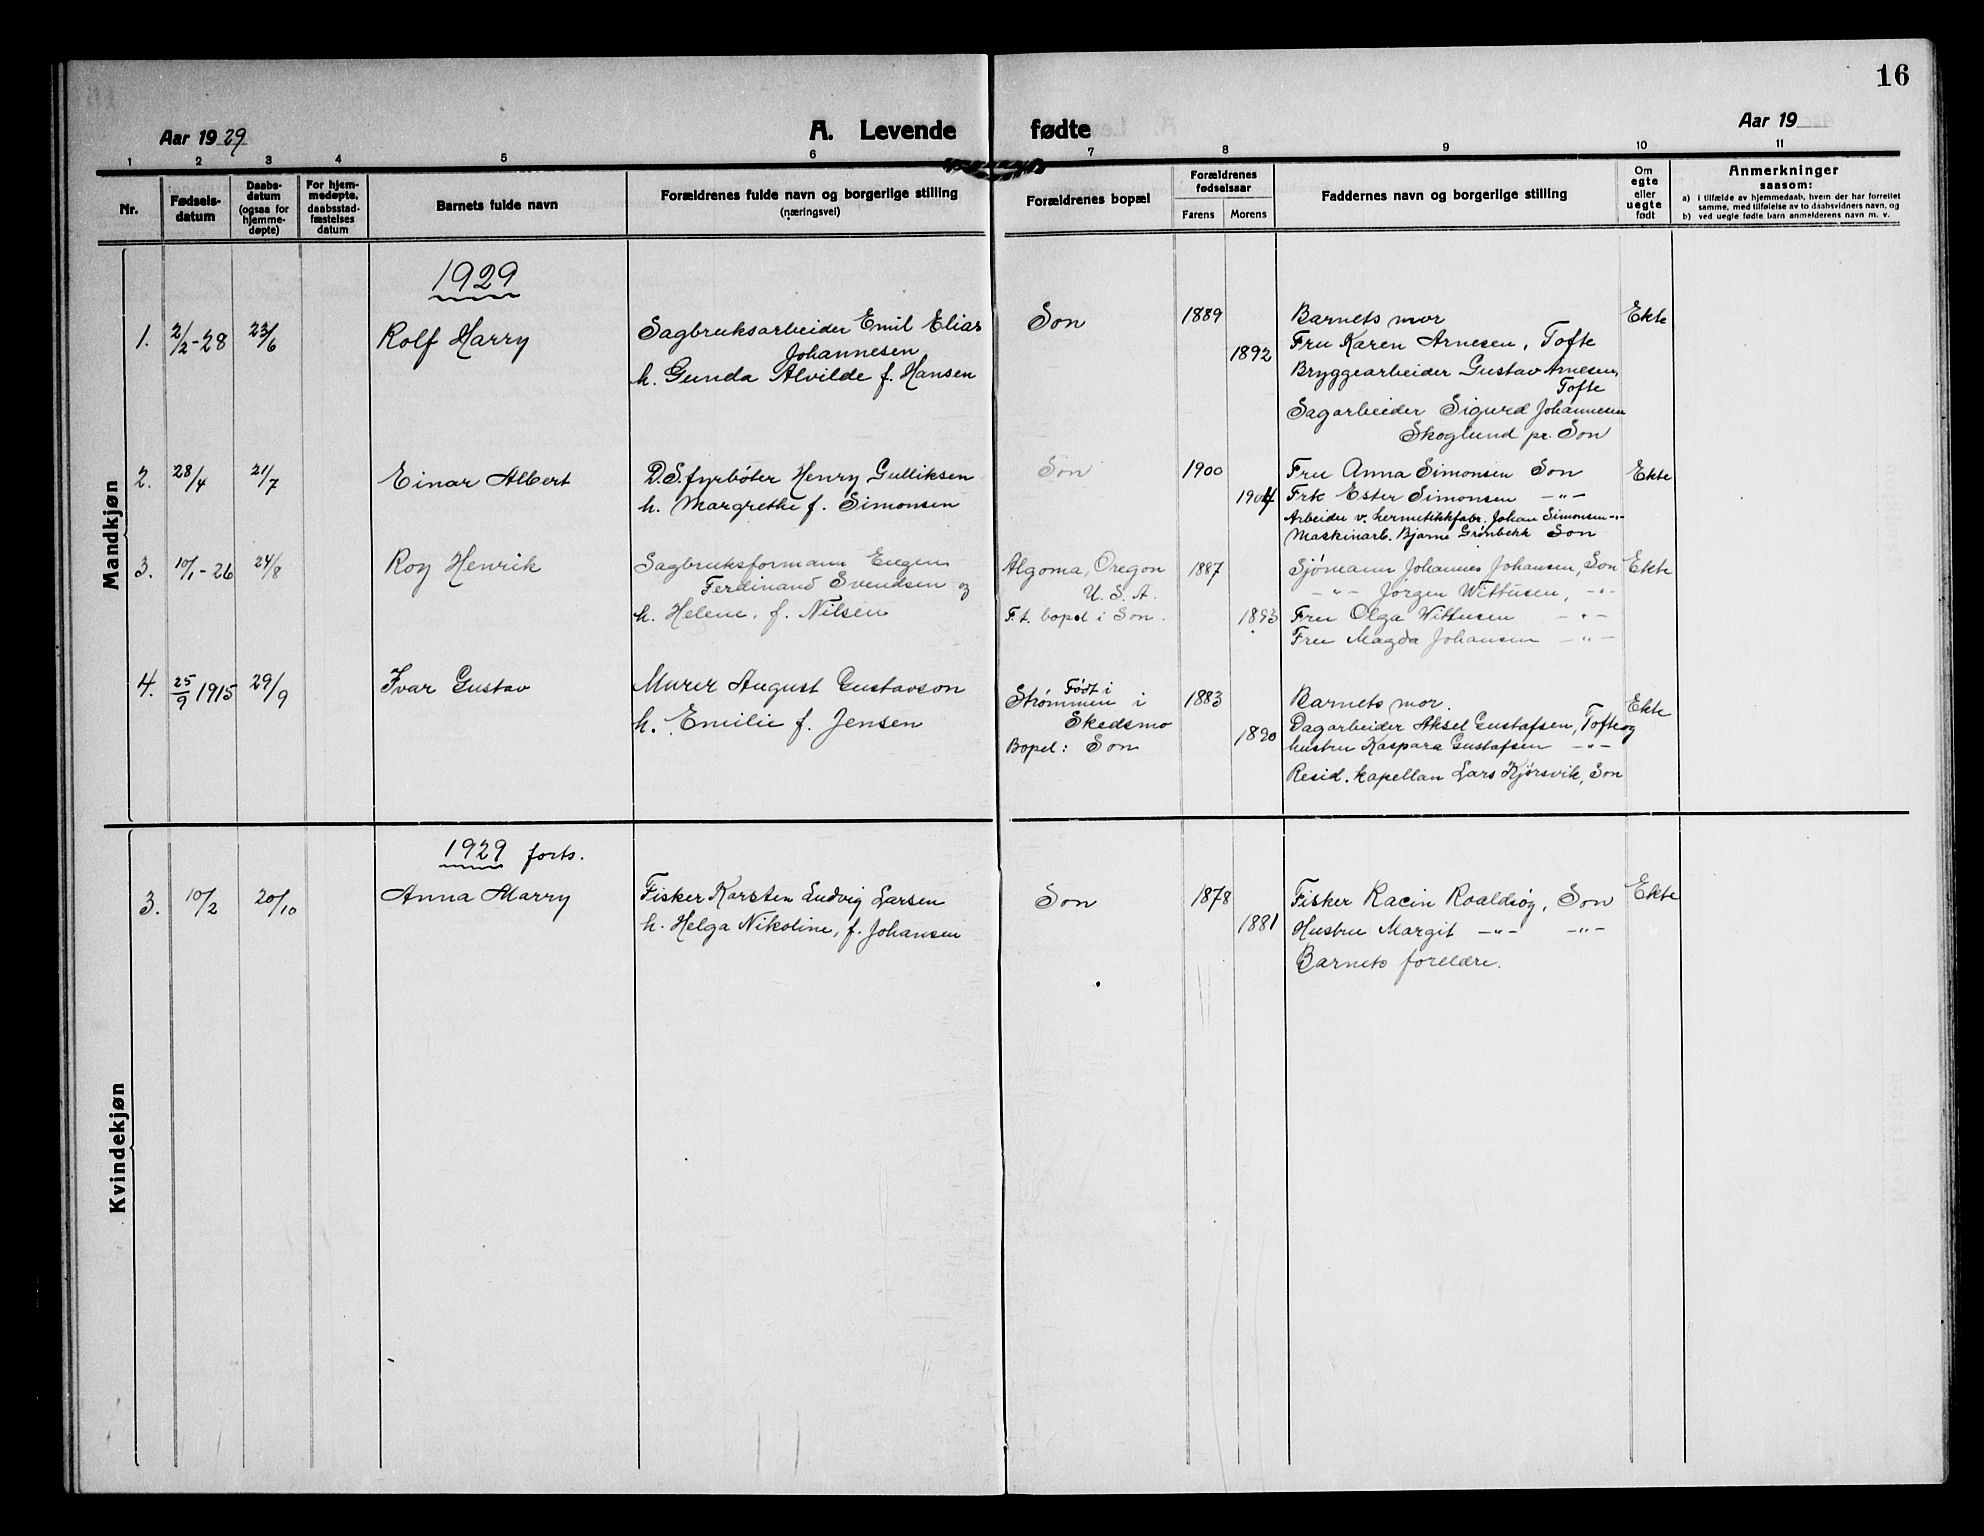 16
Aar 1929
A. Levende fødte
Aar 19
1 2 3 4 5 6 7 8 9 10 11
Nr.
Fødsels-
datum
Daabs-
datum
(ogsaa for
hjemme-
døpte)
For hjem-
medøpte,
daabsstad-
fæstelses
datum
Barnets fulde navn
Forældrenes fulde navn og borgerlige stilling
(næringsvei)
Forældrenes bopæl
Forældrenes
fødselsaar
Farens Morens
Faddernes navn og borgerlige stilling
Om
egte
eller
uegte
født
Anmerkninger
saasom:
a) i tilfælde av hjemmedaab, hvem der har forrettet
samme, med tilføielse av to daabsvidners navn, og
b) ved uegte fødte barn anmelderens navn m. v.
Mandkjøn
1929
1. 2/2-28 23/6 Rolf Harry
Sagbruksarbeider Emil Elias
Johannesen
h. Gunda Alvilde f. Hansen
Son
1889
1892
Barnets mor
Fru Karen Arnesen, Tofte
Bryggearbeider Gustav Arnesen,
Tofte
Sagarbeider Sigurd Johannesen
Skoglund pr. Son
Ekte
2. 28/4 21/7 Einar Albert
D.S. fyrbøter Henry Gulliksen
h. Margrethe f. Simonsen
Son
1900
1904
Fru Anna Simonsen Son
Frk Ester Simonsen -"-
Arbeider v. hermetikkfabr. Johan Simonsen -"-
Maskinarb. Bjarne Grønbekk Son
Ekte
3. 10/1-26 24/8 Roy Henrik
Sagbruksformann Eugen
Ferdinand Svendsen og
h. Helene, f. Nilsen
Algoma, Oregon
U. S. A.
F.t. bopel i Son.
1887
1893
Sjømann Johannes Johansen, Son
-"- Jørgen Wittusen, -"-
Fru Olga Wittusen -"-
Fru Magda Johansen -"-
Ekte
4. 25/9 1915 29/9 Ivar Gustav
Murer August Gustavson
h. Emilie f. Jensen
Født i
Strømmen i
Skedsmo
Bopel: Son
1883
1890
Barnets mor.
Dagarbeider Aksel Gustafsen, Tofte og
hustru Kaspara Gustafsen -"-
Resid. kapellan Lars Kjørsvik, Son
Ekte
Kvindekjøn
1929 forts.
3. 10/2 20/10 Anna Marry
Fisker Karsten Ludvig Larsen
h. Helga Nikoline, f. Johansen
Son
1878
1881
Fisker Racin Roaldsøy, Son
Hustru Margit -"- -"-
Barnets foreldre.
Ekte